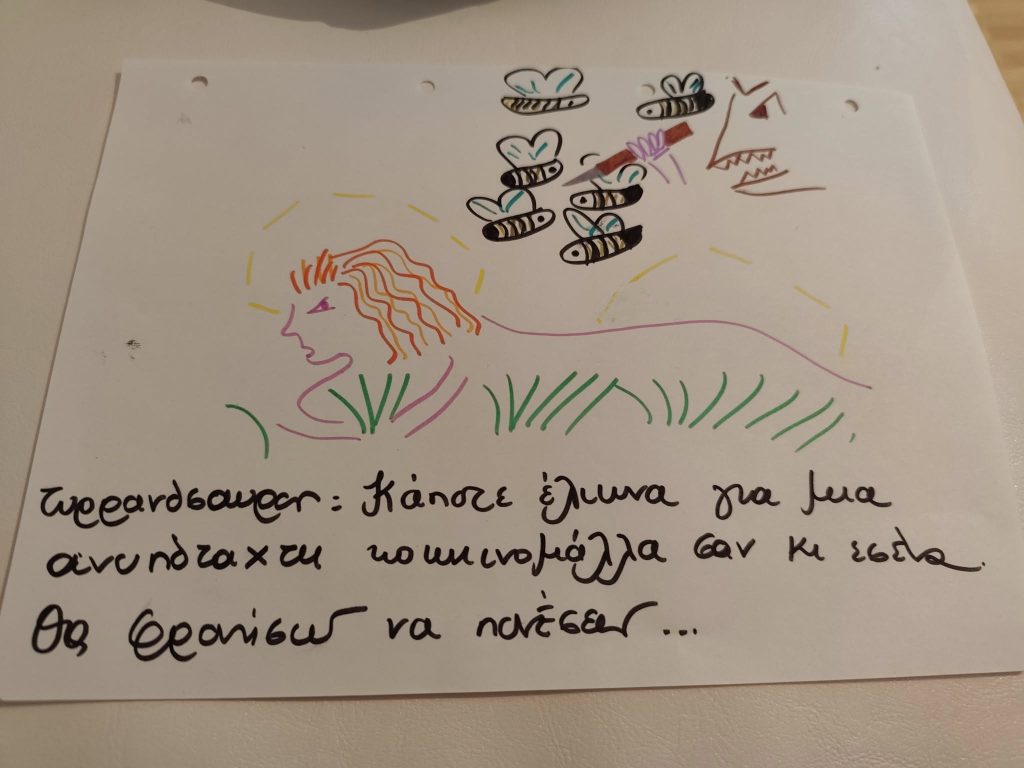 τυρρανόσαυρος: Κάποτε έλιωνα για μια
ανυπόταχτη κοκκινομάλλα σαν κι εσένα.
Θα φροντίσω να πονέσεις...